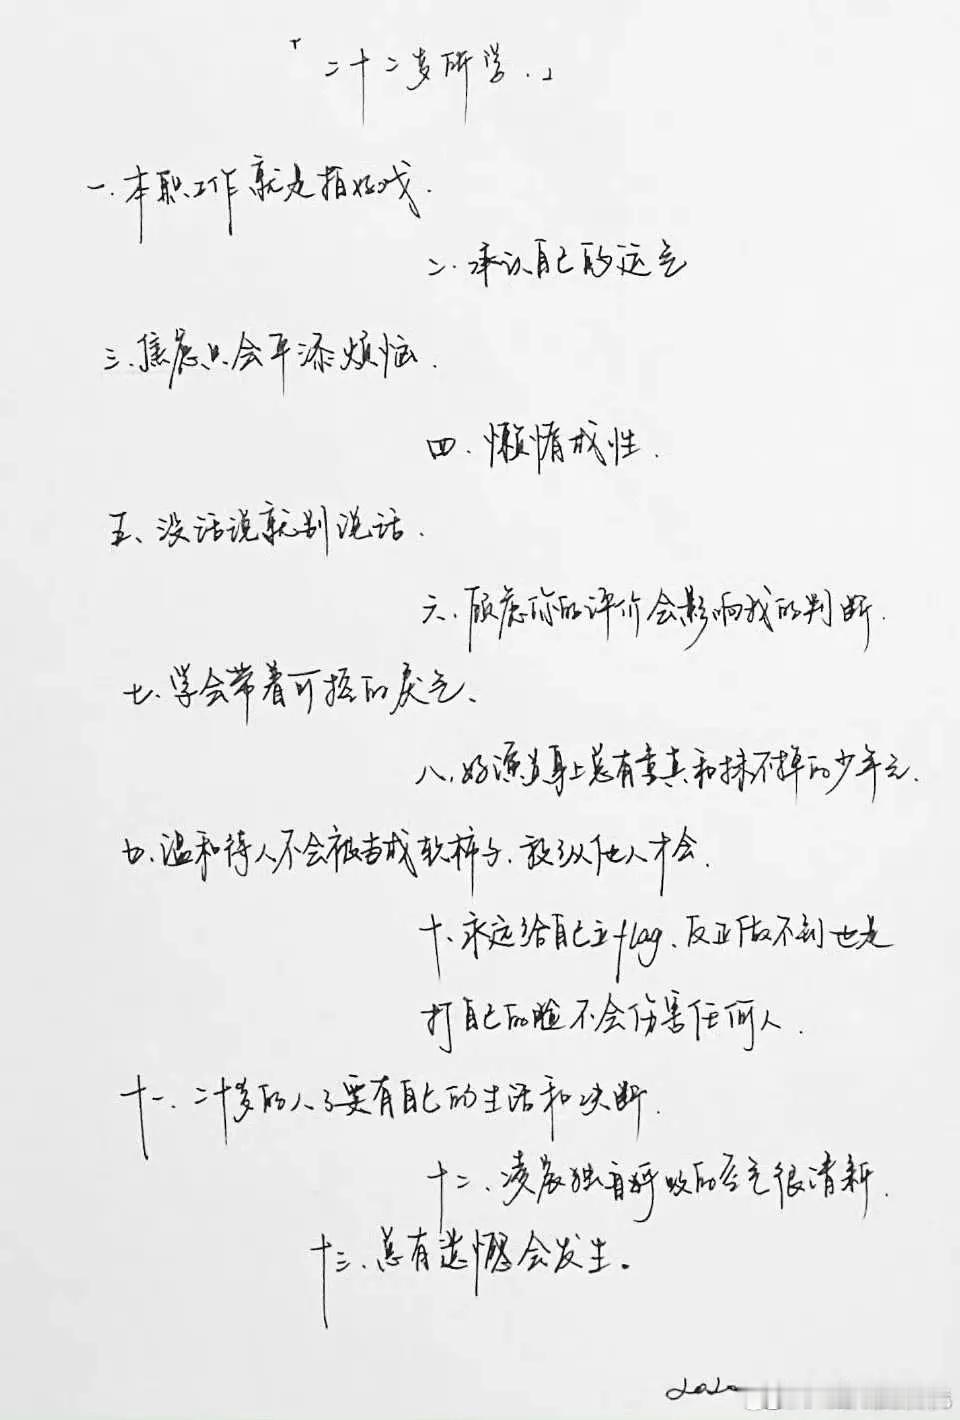 「二十二岁所学.」
一.本职工作就是拍好戏.
二.承认自己的运气
三.焦虑只会平添烦恼.
四.懒惰成性.
五、没话说就别说话.
六、顾虑你的评价会影响我的判断.
七、学会带着可控的戾气、
八、好演员身上总有童真和抹不掉的少年气.
九、温和待人不会被当成软柿子、放纵他人才会.
十、永远给自己立flag、反正做不到也是
打自己的脸不会伤害任何人.
十一、二十岁的人了要有自己的生活和决断.
十二、凌晨独自呼吸的空气很清新.
十三、总有遗憾会发生。
2020